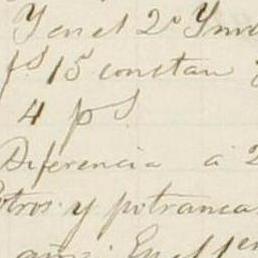 Y en el 2º Ynv
ps 15 constan
4 ps
Diferencia a 2
Potros y potranca